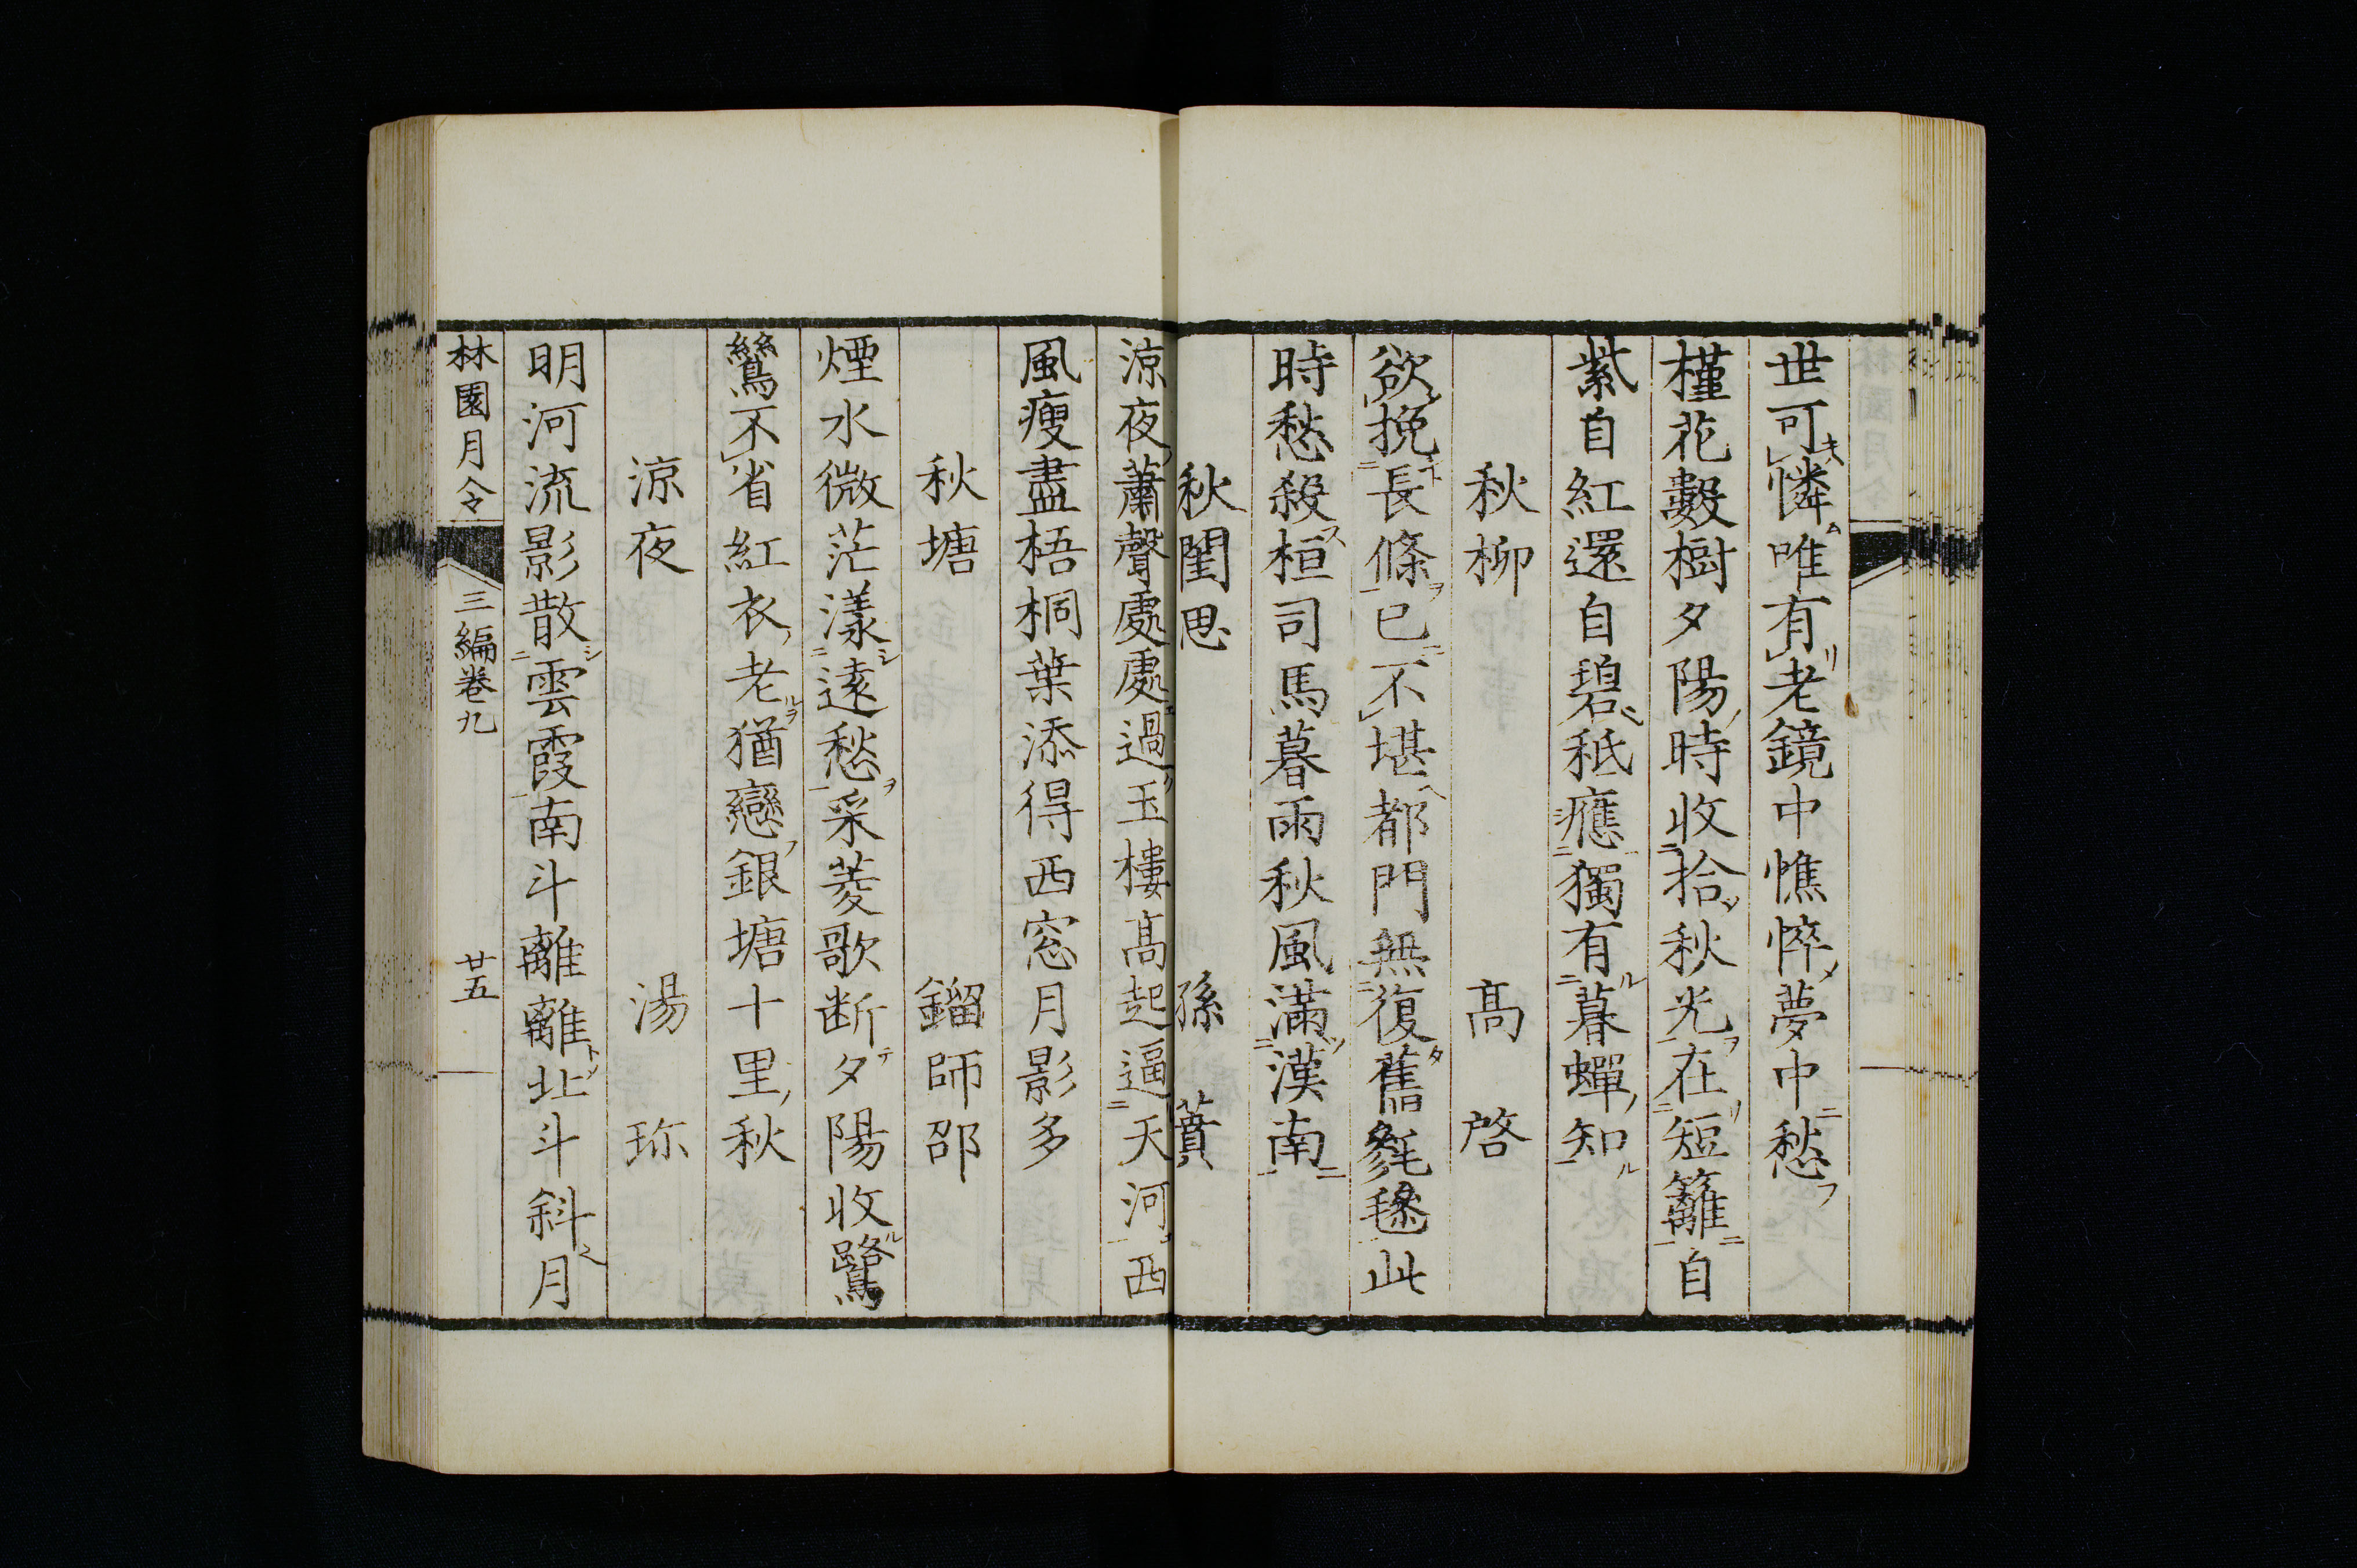 世可憐唯有老鏡中憔悴夢中愁
槿花數樹夕陽時收拾秋光在短籬自
紫自紅還自碧秪應獨有暮蟬知
秋柳 高啓
欲挽長條已不堪都門無復舊毿毿此
時愁殺桓司馬暮雨秋風滿漢南
秋閨思 孫蕡
涼夜蕭聲處處過玉樓高起逼天河西
風瘦盡梧桐葉添得西窓月影多
秋塘 鎦師邵
煙水微茫漾遠愁采菱歌断夕陽收鷺
鷥不省紅衣老猶戀銀塘十里秋
涼夜 湯珎
明河流影散雲霞南斗離離北斗斜月
林園月令 三編卷九 廿五